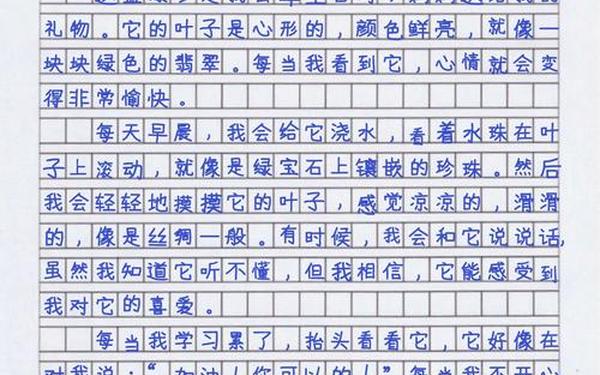 礼物。它的叶子是心形的，颜色鲜亮，就像一
块块绿色的翡翠。每当我看到它，心情就会变
得非常愉快。
每天早晨，我会给它浇水，看着水珠在叶
子上滚动，就像是绿宝石上镶嵌的珍珠。然后
我会轻轻地摸摸它的叶子，感觉凉凉的，滑滑
的，像是丝绸一般。有时候，我会和它说说话，
虽然我知道它听不懂，但我相信，它能感受到
我对它的喜爱。
每当我学习累了，抬头看看它，它好像在
对我说：“加油！你可以的！”每当我不开心